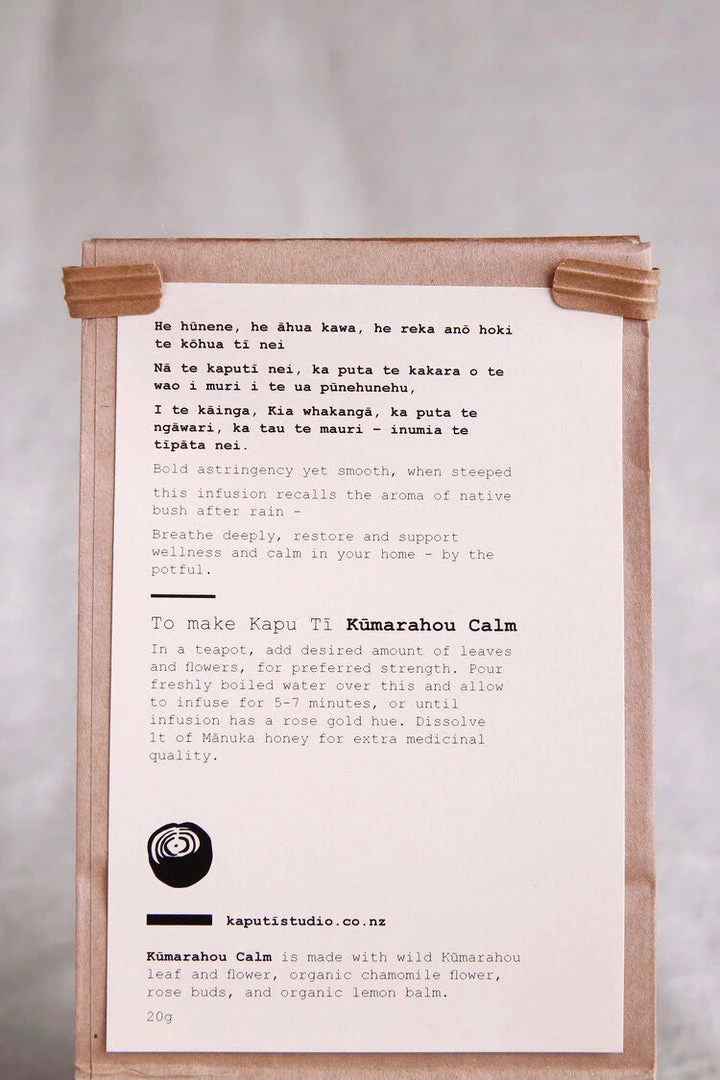 He hūnene, he āhua kawa, he reka anō hoki
te kōhua tī nei
Nā te kaputī nei, ka puta te kakara o te
wao i muri i te ua pūnehunehu,
I te kāinga, Kia whakangā, ka puta te
ngāwari, ka tau te mauri – inumia te
tīpāta nei.
Bold astringency yet smooth, when steeped
this infusion recalls the aroma of native
bush after rain –
Breathe deeply, restore and support
wellness and calm in your home – by the
potful.
To make Kapu Tī Kūmarahou Calm
In a teapot, add desired amount of leaves
and flowers, for preferred strength. Pour
freshly boiled water over this and allow
to infuse for 5-7 minutes, or until
infusion has a rose gold hue. Dissolve
1t of Mānuka honey for extra medicinal
quality.
kaputīstudio.co.nz
Kūmarahou Calm is made with wild Kūmarahou
leaf and flower, organic chamomile flower,
rose buds, and organic lemon balm.
20g